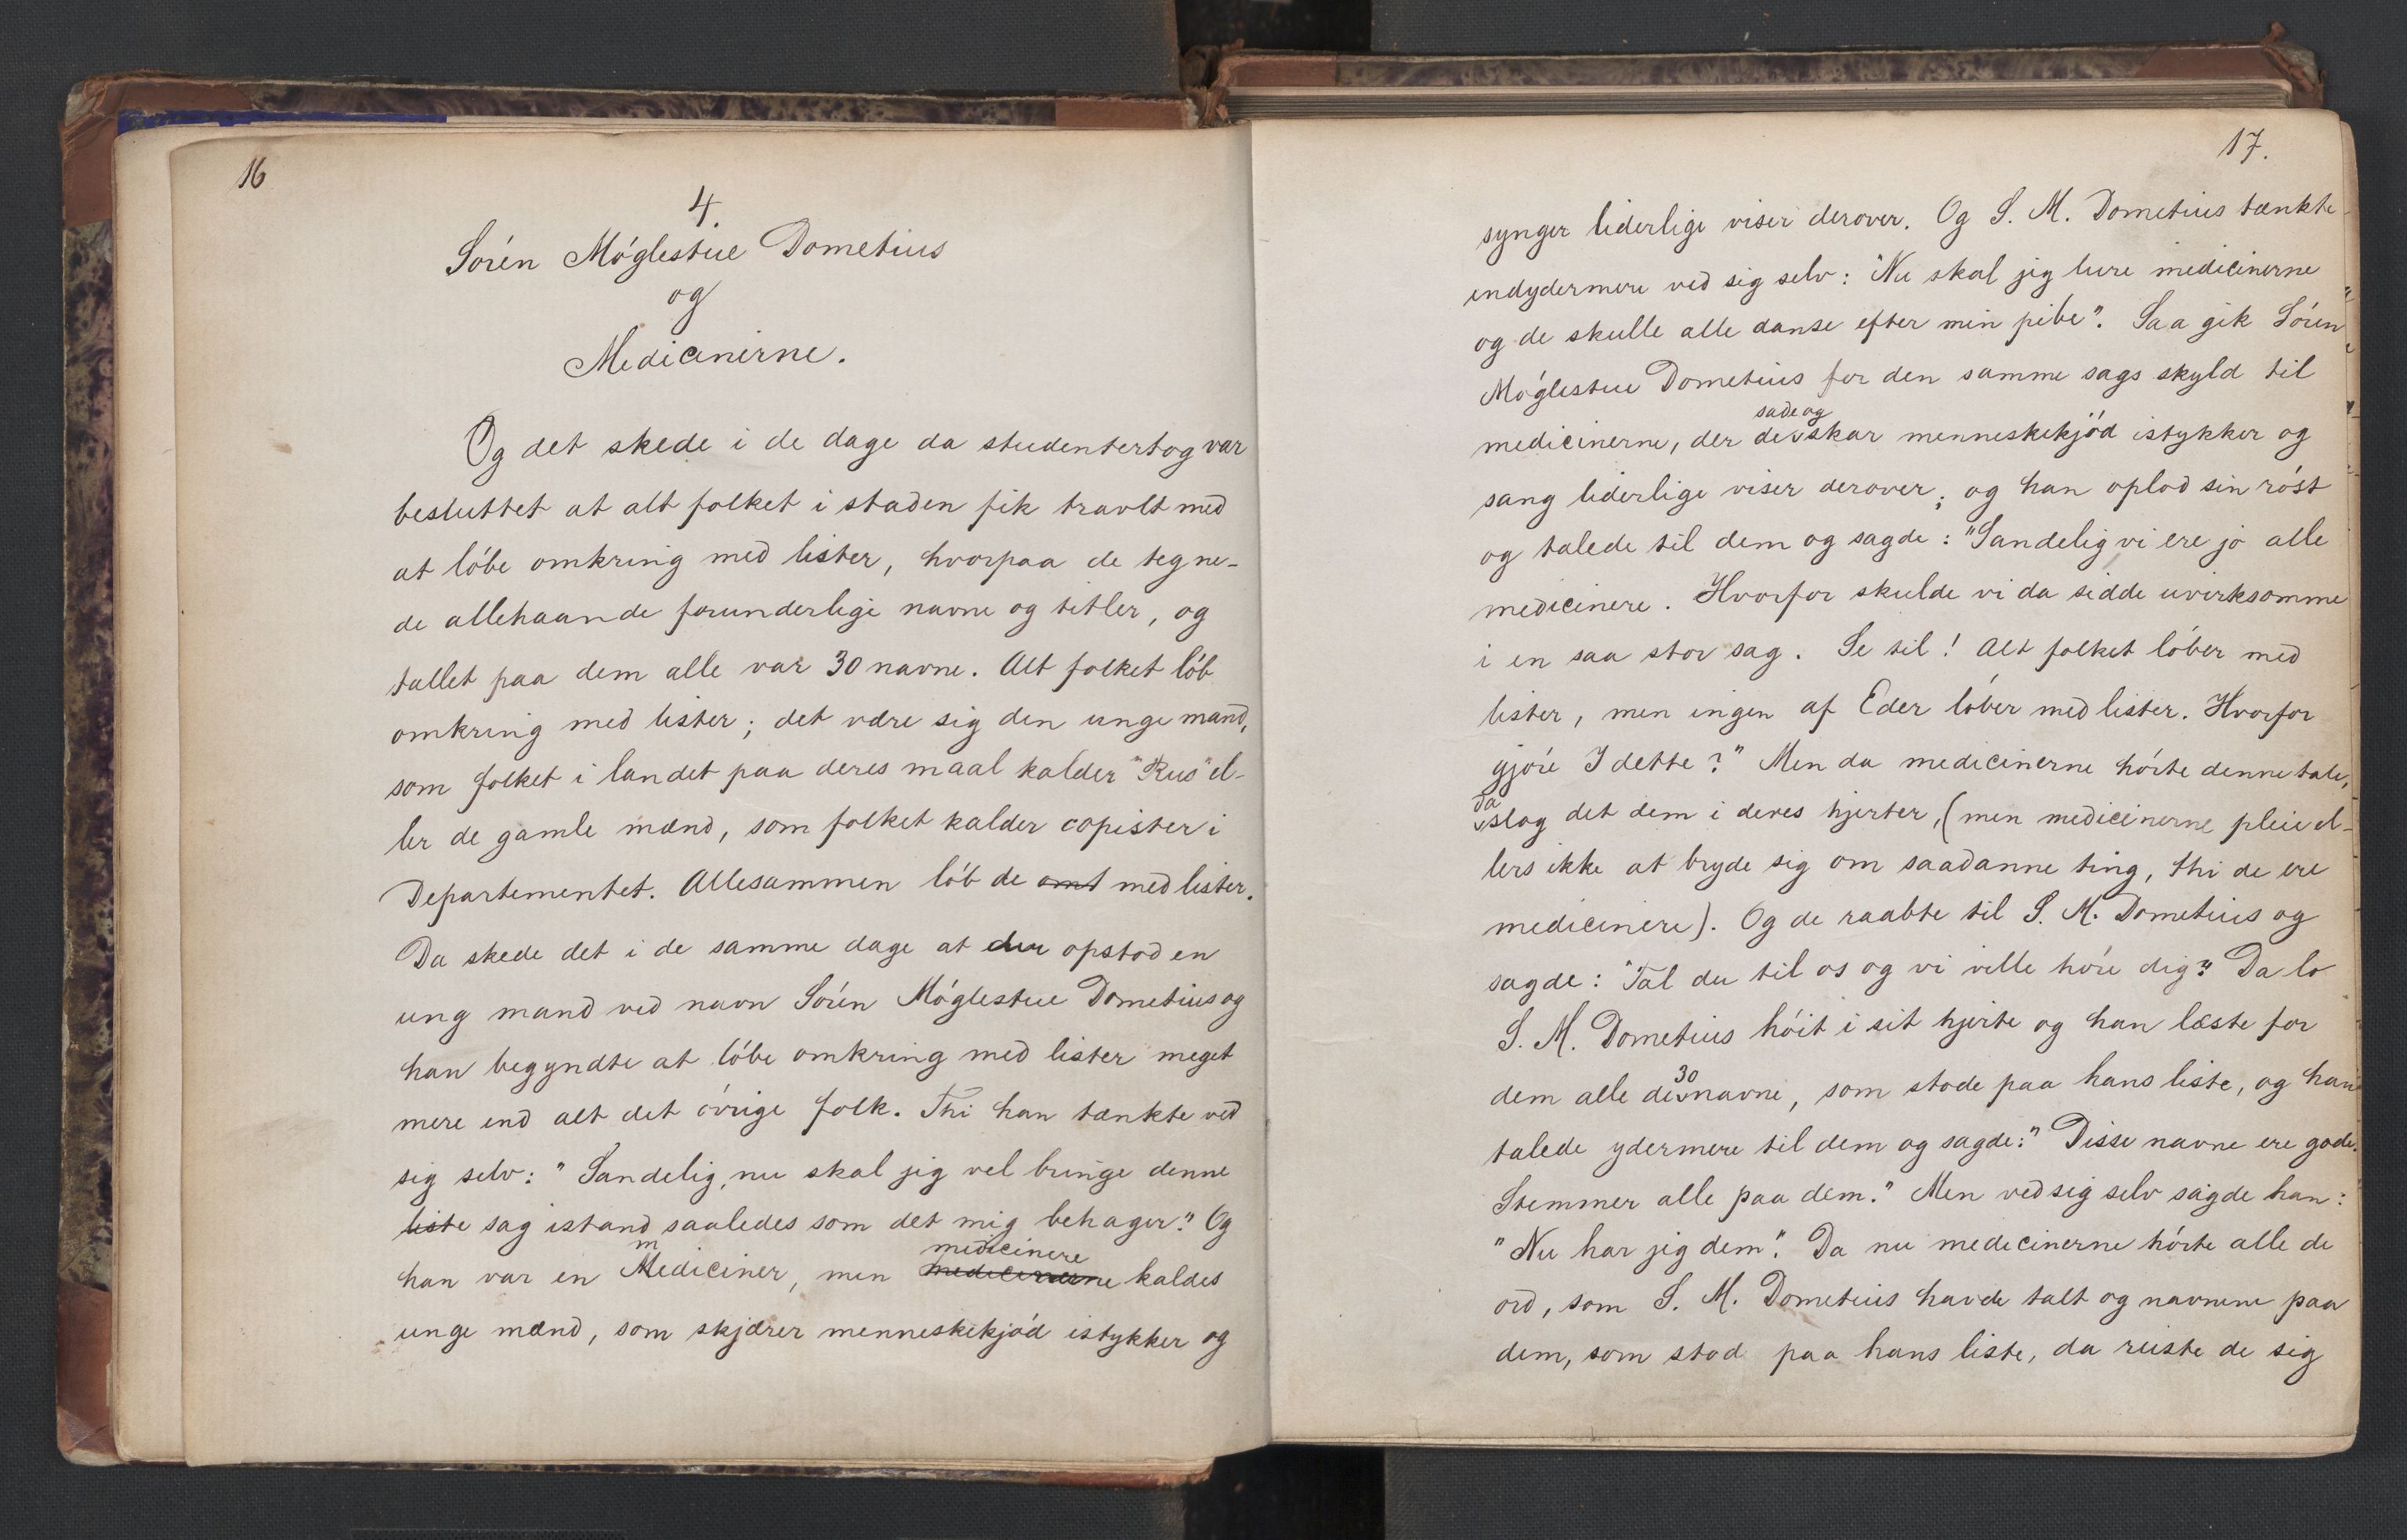 16
4.
Sören Möglestue Dometius
og
Medicinerne.
Og det skede i de dage da studentertog var
besluttet at alt folket i staden fik travlt med
at löbe omkring med lister, hvorpaa de tegne-
de allehaande forunderlige navne og titler, og
tallet paa dem alle var 30 navne. Alt folket löb
omkring med lister; det være sig den unge mand,
som folket i landet paa deres maal kalder "Rus" el-
ler de gamle mænd, som folket kalder copister i
Departementet. Allesammen löb de omt med lister.
Da skede det i de samme dage at der opstod en
ung mand ved navn Sören Möglestue Dometius og
han begyndte at löbe omkring med lister meget
mere end alt det övrige folk. Thi han tænkte ved
sig selv: "Sandelig, nu skal jig vel bringe denne
liste sag istand saaledes som det mig behager." Og
m medicinere
han var en Mediciner, men medicinerne kaldes
unge mænd, som skjærer menneskekjöd istykker og
17.
synger liderlige viser derover. Og S. M. Dometius tænkte
endydermere ved sig selv: "Nu skal jig lure medicinerne
og de skulle alle danse efter min pibe". Saa gik Sören
Möglestue Dometius for den samme sags skyld til
sade og
medicinerne, der de skar menneskekjöd istykker og
sang liderlige viser derover; og han oplod sin röst
og talede til dem og sagde: "Sandelig vi ere jo alle
medicinere. Hvorfor skulde vi da sidde uvirksomme
i en saa stor sag. Se til! Alt folket löber med
lister, men ingen af Eder löber med lister. Hvorfor
gjöre I dette?" Men da medicinerne hörte denne tale,
da
slog det dem i deres hjerter, (men medicinerne pleie el-
lers ikke at bryde sig om saadanne ting, thi de ere
medicinere). Og de raabte til S. M. Dometius og
sagde: "Tal du til os og vi ville höre dig". Da lo
S. M. Dometius höit i sit hjerte og han læste for
30
dem alle de navne, som stode paa hans liste, og han
talede ydermere til dem og sagde: "Disse navne ere gode.
Stemmer alle paa dem." Men ved sig selv sagde han:
"Nu har jig dem". Da nu medicinerne hörte alle de
ord, som S. M. Dometius havde talt og navnene paa
dem, som stod paa hans liste, da reiste de sig